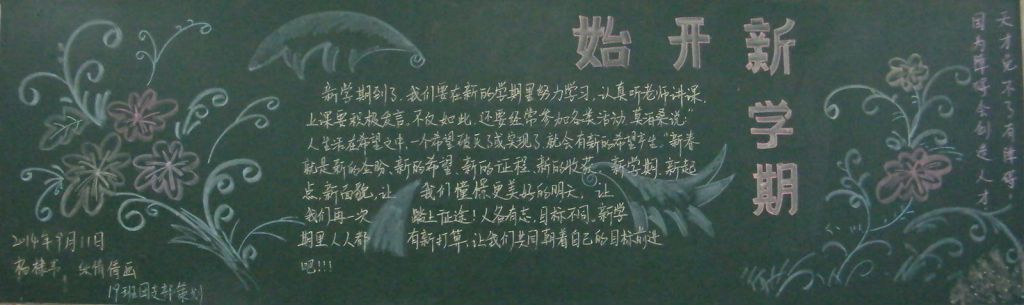 新学期
开
始
天才免不了有障碍，
因为障碍会创造人才。
新学期到了，我们要在新的学期里努力学习，认真听老师讲课，
上课要积极发言，不仅如此，还要经常参加各类活动，莫泊桑说："
人生活在希望之中，一个希望破灭了或实现了，就会有新的希望产生。"新春
就是新的企盼、新的希望、新的征程、新的收获。新学期，新起
点，新面貌，让 我们憧憬更美好的明天， 让
我们再一次 踏上征途！人各有志，目标不同，新学
期里人人都 有新打算，让我们共同朝着自己的目标前进
吧!!!
2014年9月11日
19班团支部策划